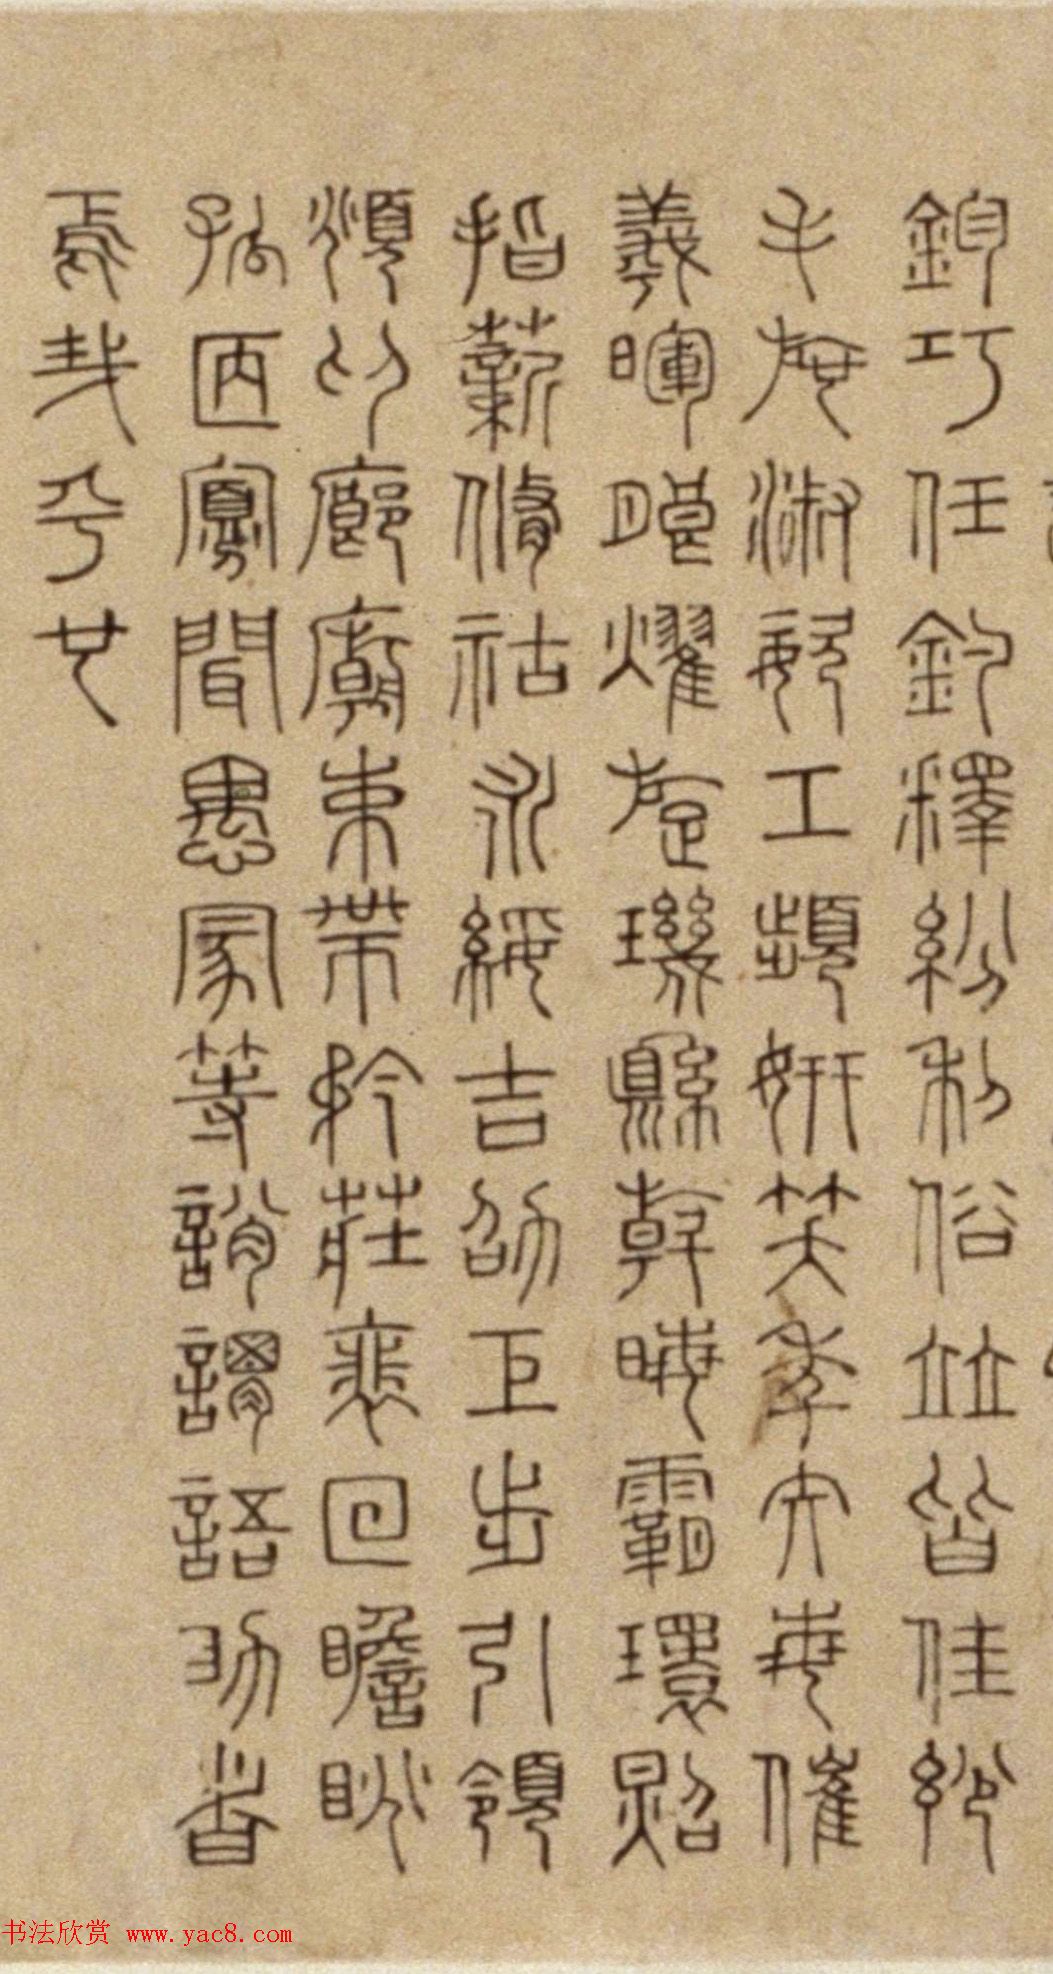 鈞巧任釣釋紛利俗竝皆佳妙
毛施淑姿工顰妍笑年矢每催
羲暉朗燿旋璣縣斡晦霸環照
指薪脩祜永綏吉劭矩步引領
頫仰廊廟束帶矜莊裵回瞻眺
孤陋寡聞愚蒙等誚謂語助者
焉哉乎也
书法欣赏 www.yac8.com